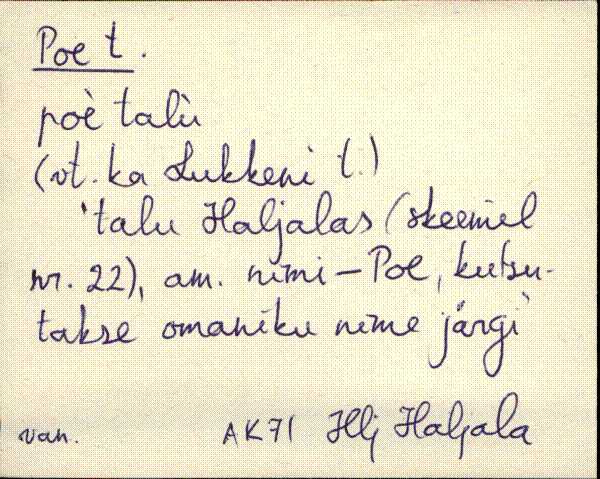 Poe t.
poè talù
(vt. ka Lukkeni t.)
'talu Haljalas (skeemiel
nr. 22), am. nimi – Poe, kutsu-
takse omaniku nime järgi'
van. AK71 Hlj Haljala